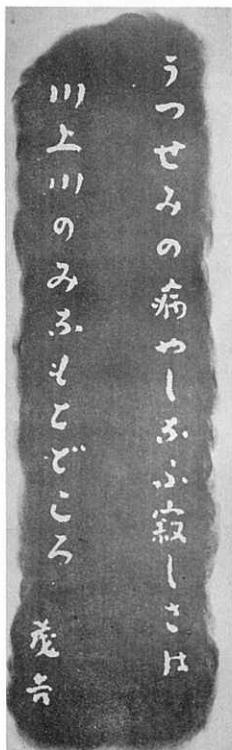 うつせみの病やしなふ寂しさは
川上川のみなもとどころ
茂吉